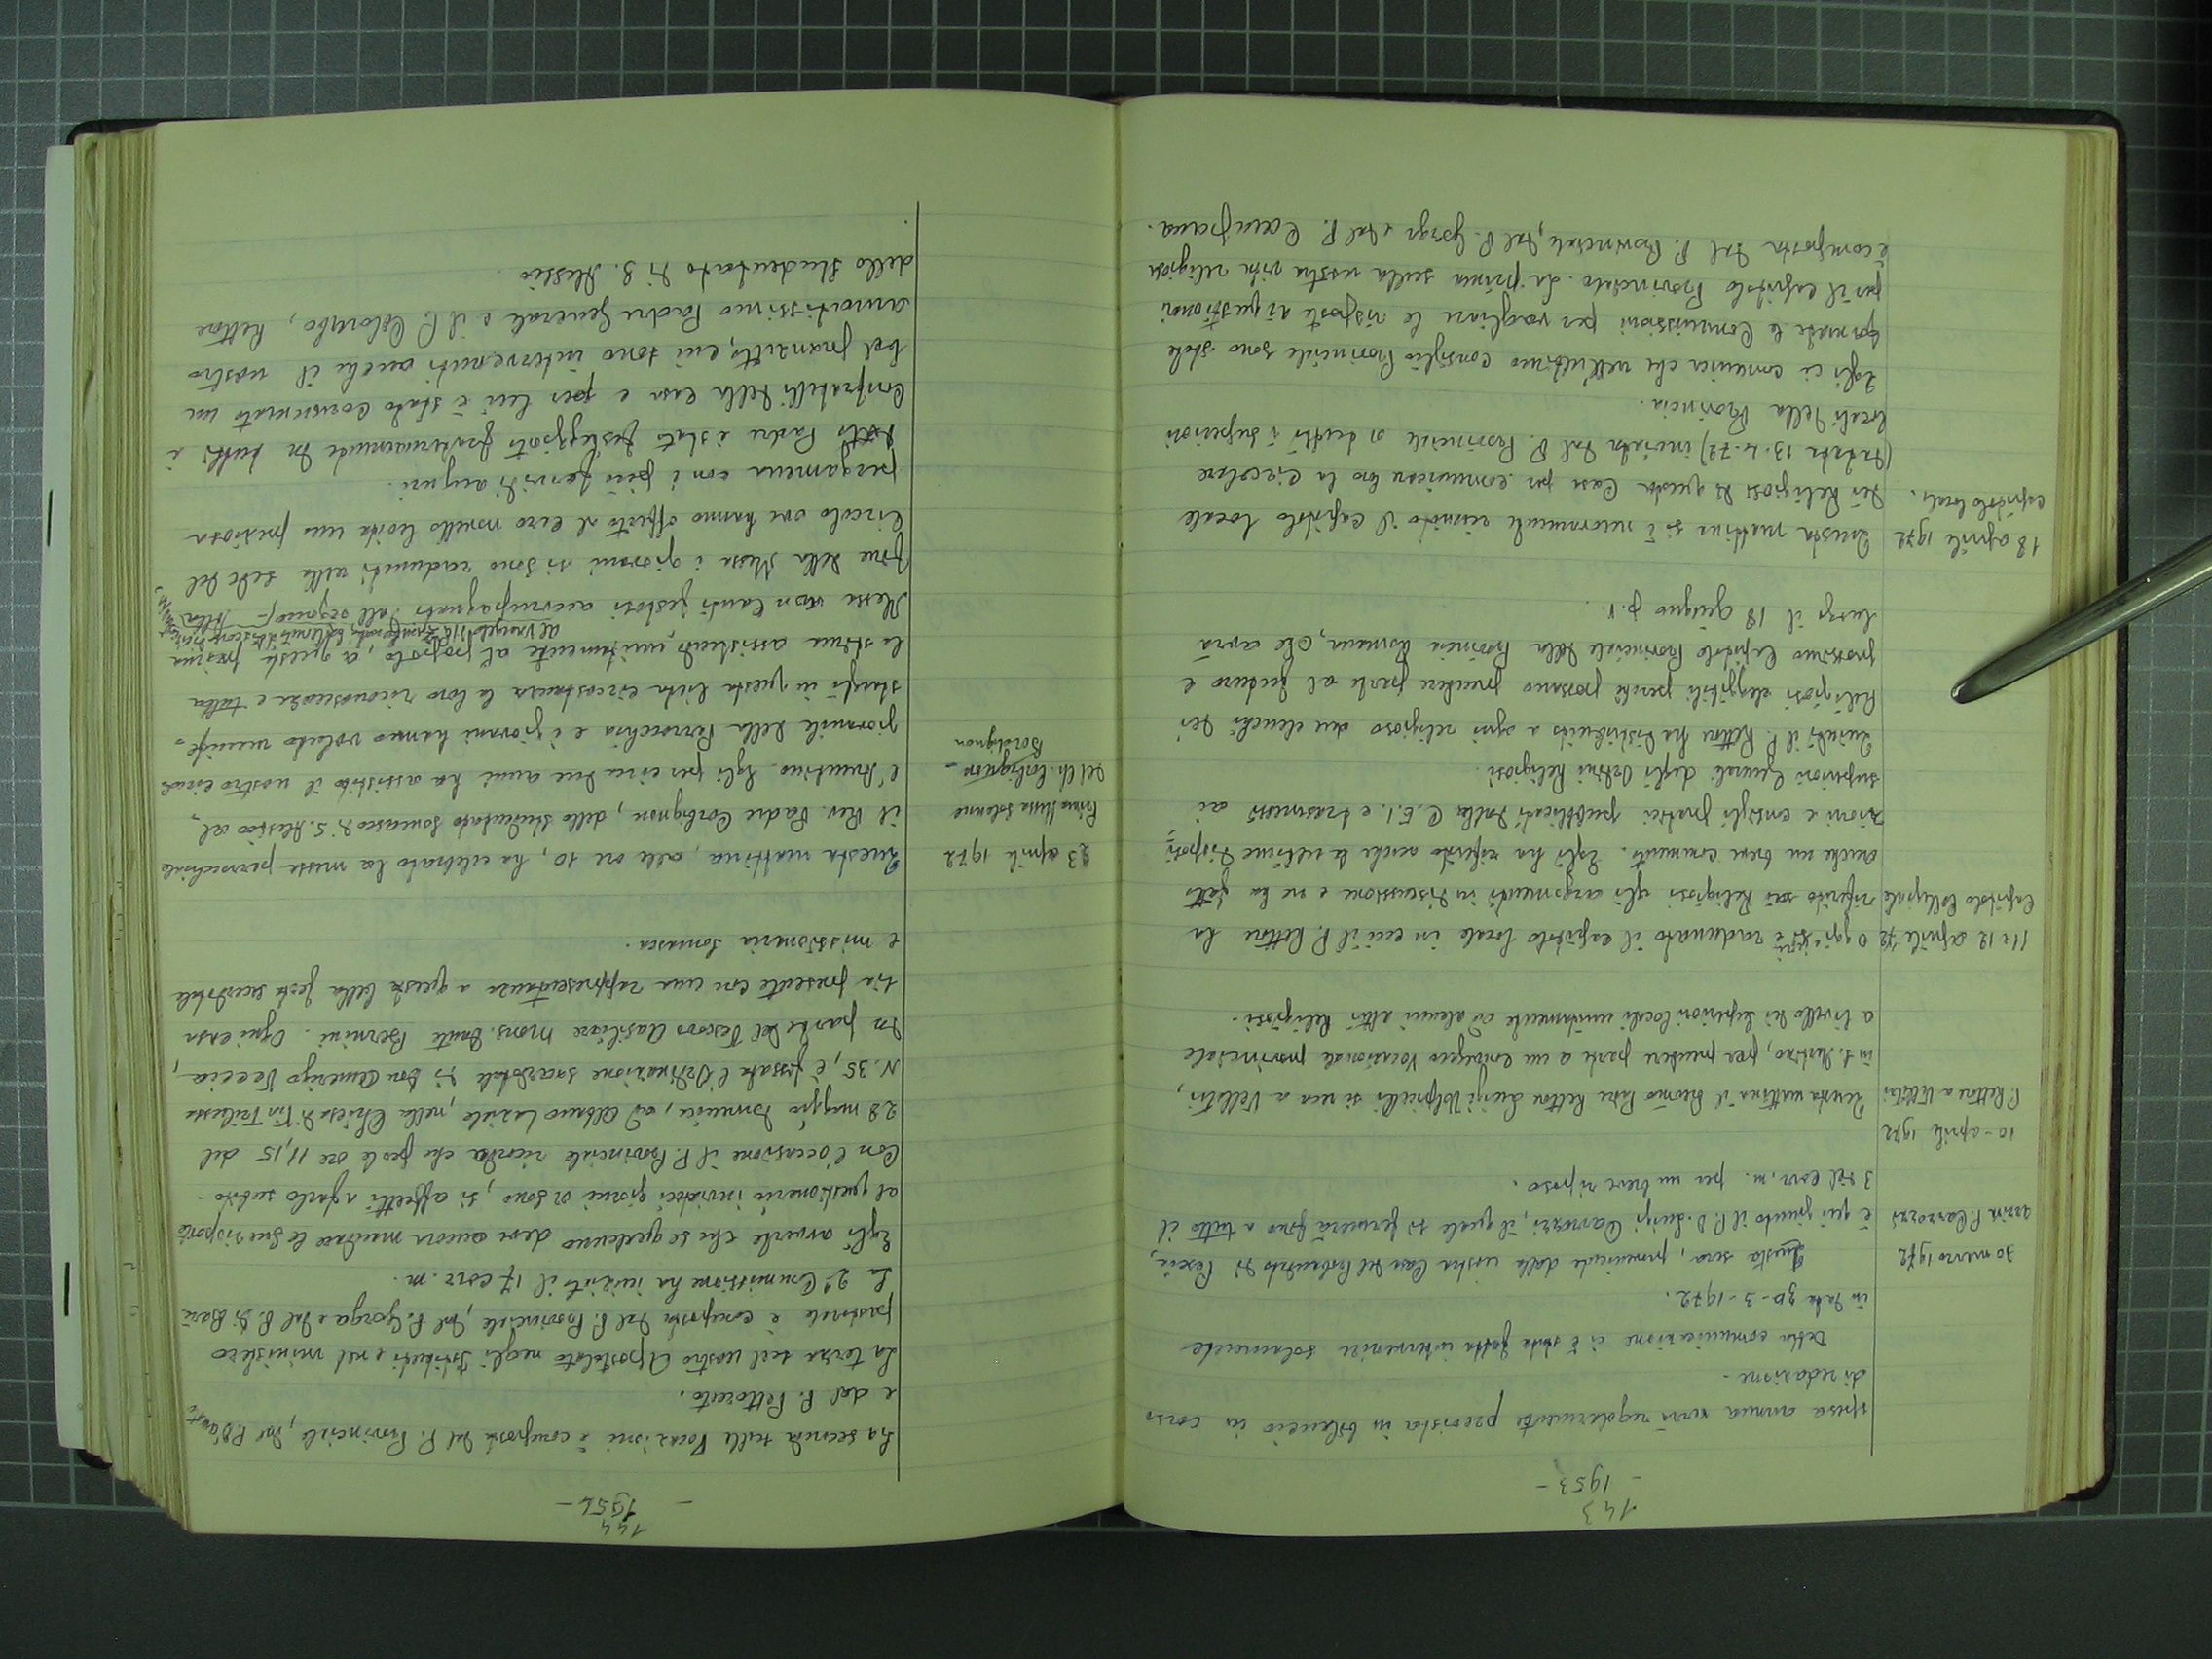 143
- 1953 -
spesa annua verrà regolarmente prevista in bilancio in corso
di redazione.
Detta comunicazione ci è stata fatta intervenire solamente
in data 30-3-1972.
30 marzo 1972
Questa sera, proveniente dalla nostra Casa del Probandato di Pescia,
P. Carrozzi
è qui giunto il P. D. Luigi Carrozzi, il quale si fermerà fino a tutto il
3 del corr. m. per un breve riposo.
10-aprile 1972
P. Rettore a Velletri
Questa mattina il buono Padre Rettore Luigi Volpicelli si reca a Velletri,
in S. Martino, per prendere parte a un Convegno Vocazionale provinciale
a livello dei Superiori locali unitamente ad alcuni altri Religiosi.
11 e 12 aprile 72
Oggi si è radunato il capitolo locale in cui il P. Rettore ha
Capitolo Collegiale
riferito ai Religiosi gli argomenti in discussione e ne ha fatto
anche un breve commento. Egli ha riferito anche le ultime disposi-
zioni e consigli pratici pubblicati dalla C.E.I. e trasmessi ai
superiori Generali degli Ordini Religiosi.
Quindi il P. Rettore ha distribuito a ogni religioso due elenchi dei
Religiosi eleggibili perché possano prendere parte al futuro e
prossimo Capitolo Provinciale della Provincia Romana, che avrà
luogo il 18 Giugno p.v.
18 aprile 1972
Questa mattina si è nuovamente riunito il Capitolo Locale
capitolo locale.
dei Religiosi di questa Casa per comunicare loro la Circolare
(datata 13.4.72) inviata dal P. Provinciale a tutti i Superiori
locali della Provincia.
Egli ci comunica che nell'ultimo Consiglio Provinciale sono state
formate le Commissioni per vagliare le risposte ai questionari
per il capitolo Provinciale. La prima sulla nostra vita religiosa
è composta dal P. Provinciale, dal P. Gorga e dal P. Campana.
144
- 1954 -
La seconda sulle Vocazioni è composta dal P. Provinciale, dal P. D'Amato
e dal P. Pettoruto.
La terza sul nostro Apostolato negli Istituti e nel ministero
pastorale è composta dal P. Provinciale, dal P. Gorga e dal P. Di Bari.
La 2ª Commissione ha iniziato il 17 corr. m.
Egli avverte che se qualcuno deve ancora mandare le sue risposte
al questionario inviatoci giorni or sono, si affretti a farlo subito.
Con l'occasione il P. Provinciale ricorda che per le ore 11,15 del
28 maggio Domenica, ad Albano Laziale, nella Chiesa di Via Trilussa
N. 35, è fissata l'Ordinazione sacerdotale di Don Amerigo Veccia,
da parte del Vescovo Ausiliare Mons. Dante Bernini. Ogni casa
sia presente con una rappresentanza a questa bella festa sacerdotale
e missionaria Somasca.
23 aprile 1972
Questa mattina, alle ore 10, ha celebrato la messa parrocchiale
Prima Messa Solenne
il Rev. Padre Cordignon, dello studentato Somasco di S. Alessio al-
del Ch. Cordignon -
l'Aventino. Egli per circa due anni ha assistito il nostro circolo
Bordignon
giovanile della Parrocchia e i giovani hanno voluto manife-
stargli in questa lieta circostanza la loro riconoscenza e tutta
la stima assistendo, unitamente al popolo, a questa prima
Messa con canti festosi accompagnati dall'organo. Alla
fine della Messa i giovani si sono radunati nella sede del
Circolo ove hanno offerto al caro novello levita una preziosa
pergamena con i più fervidi auguri.
Detto Padre è stato festeggiato fraternamente da tutti i
Confratelli della Casa e per lui è stato consumato un
bel pranzetto, cui sono intervenuti anche il nostro
amatissimo Padre Generale e il P. Colombo, Rettore
dello studentato di S. Alessio.